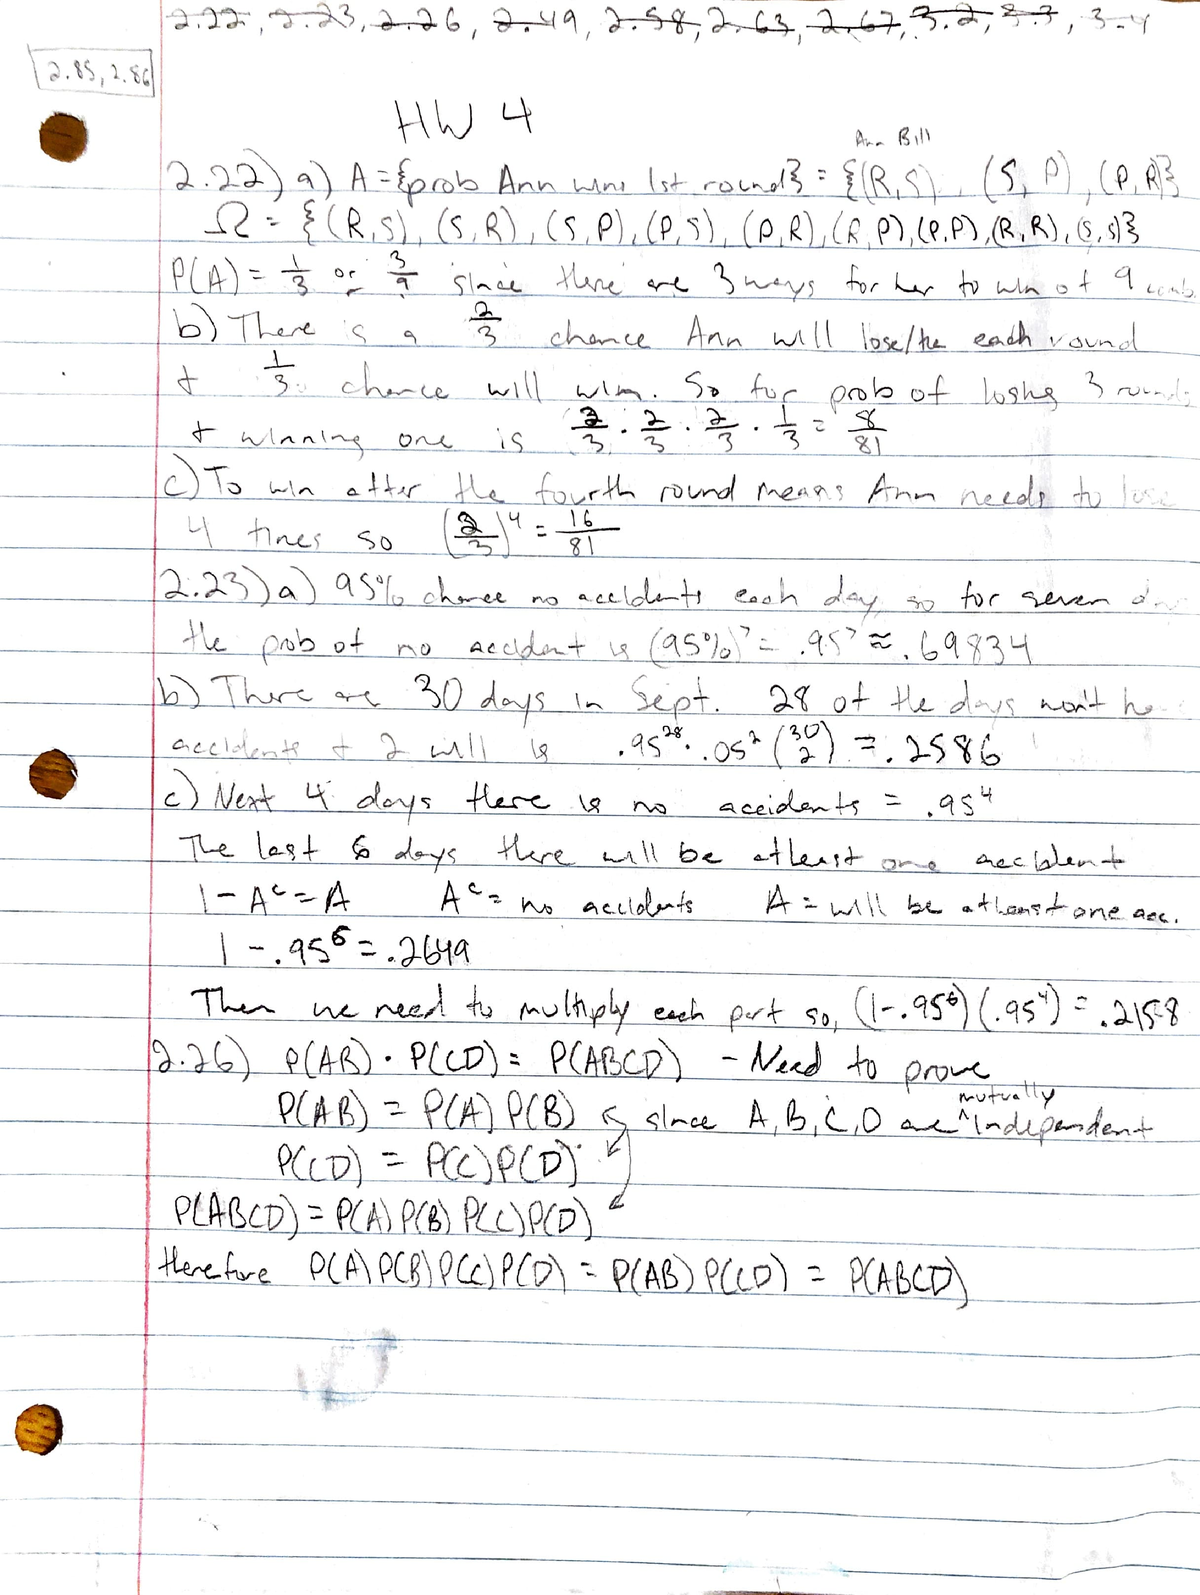 2.22, 2.23, 2.26, 2.49, 2.58, 2.63, 2.67, 3.2, 3.3, 3.4
2.85, 2.86
HW 4
Ann Bill
2.22) a) A = {prob Ann wins 1st round} = {(R,S), (S,P), (P,R)}
Ω = {(R,S), (S,R), (S,P), (P,S), (P,R), (R,P), (P,P), (R,R), (S,S)}
P(A) = 1/3 or 3/9 since there are 3 ways for her to win of 9 comb.
b) There is a 2/3 chance Ann will lose/tie each round
+ 1/3 chance will win. So for prob of losing 3 rounds
+ winning one is 2/3 · 2/3 · 2/3 · 1/3 = 8/81
c) To win after the fourth round means Ann needs to lose
4 times so (2/3)^4 = 16/81
2.23) a) 95% chance no accidents each day so for seven
the prob of no accident is (95%)^7 = .95^7 ≈ .69834
b) There are 30 days in Sept. 28 of the days won't
accidents + 2 will is .95^28 · .05^2 (30 2) = .2586
c) Next 4 days there is no accidents = .95^4
The last 6 days there will be atleast one accident
1 - A^c = A A^c = no accidents A = will be atleast one acc.
1 - .95^6 = .2649
Then we need to multiply each part so, (1-.95^6)(.95^4) = .2158
2.26) P(AB) · P(CD) = P(ABCD) - Need to prove
mutually
P(AB) = P(A) P(B) since A, B, C, D are ^ independent
P(CD) = P(C)P(D)
P(ABCD) = P(A) P(B) P(C)P(D)
therefore P(A)P(B)P(C)P(D) = P(AB) P(CD) = P(ABCD)